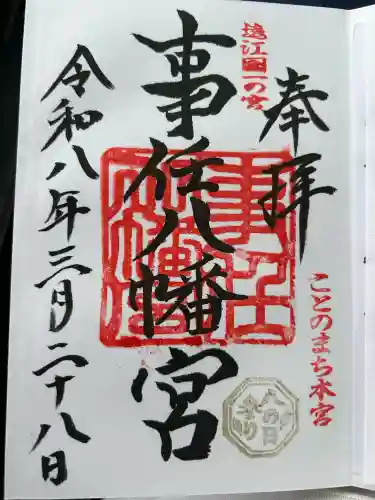 奉拝
遠江国一の宮
ことのまち本宮
事任八幡宮
八の日
令和八年三月二十八日